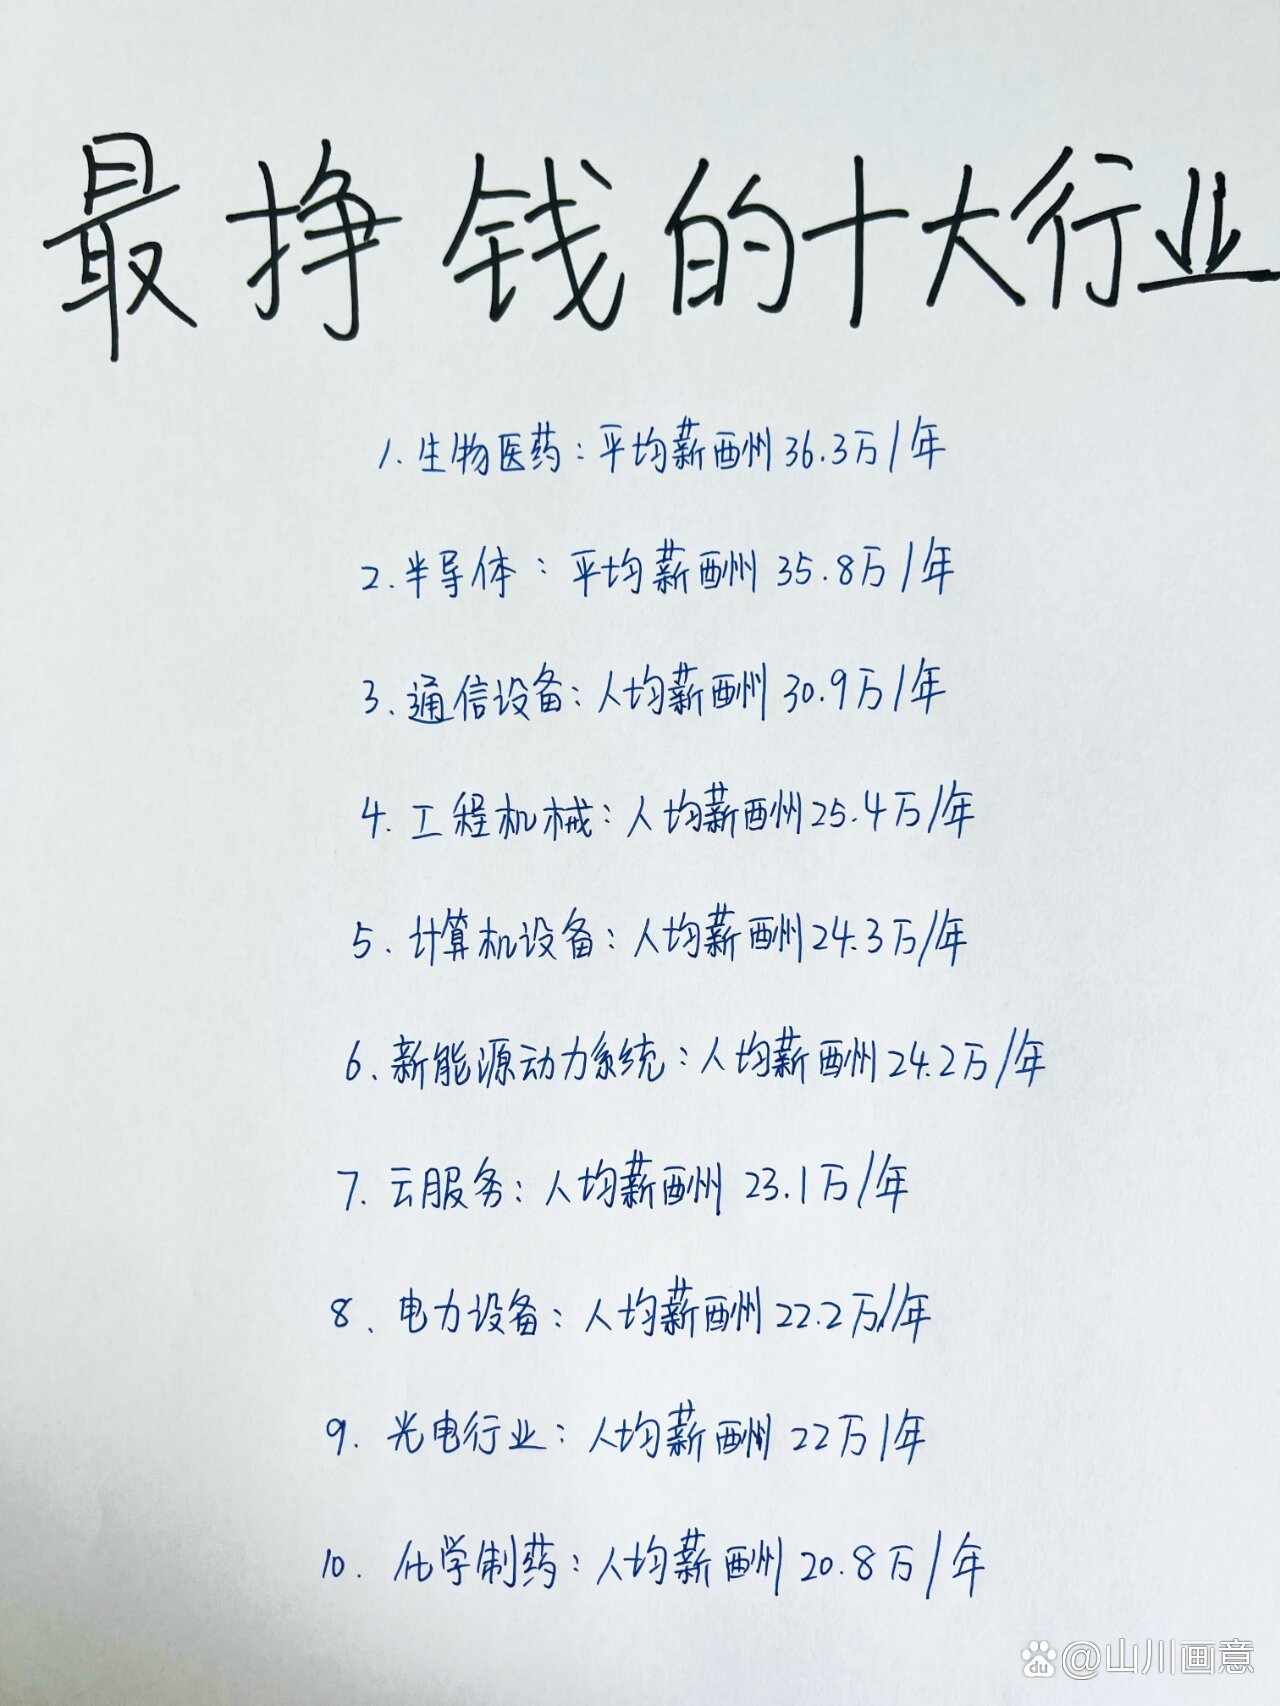 最挣钱的十大行业
1.生物医药：平均薪酬36.3万/年
2.半导体：平均薪酬35.8万/年
3.通信设备：人均薪酬30.9万/年
4.工程机械：人均薪酬25.4万/年
5.计算机设备：人均薪酬24.3万/年
6、新能源动力系统：人均薪酬24.2万/年
7.云服务：人均薪酬23.1万/年
8、电力设备：人均薪酬22.2万/年
9.光电行业：人均薪酬22万/年
10.化学制药：人均薪酬20.8万/年
du @山川画意